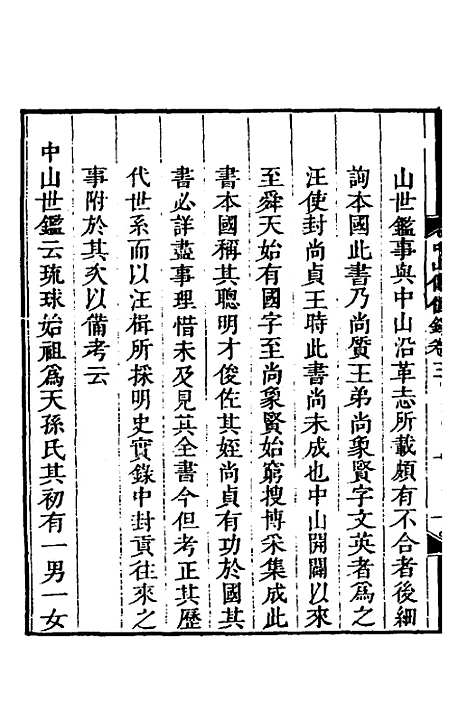 中山傳信錄卷三
山世鑑事與中山沿革志所載頗有不合者後細
詢本國此書乃尚質王弟尚象賢字文英者爲之
汪使封尚貞王時此書尚未成也中山開闢以來
至舜天始有國字至尚象賢始窮搜博采集成此
書本國稱其聰明才俊佐其姪尚貞有功於國其
書必詳盡事理惜未及見其全書今但考正其歷
代世系而以汪楫所採明史實錄中封貢往來之
事附於其次以備考云
中山世鑑云琉球始祖爲天孫氏其初有一男一女